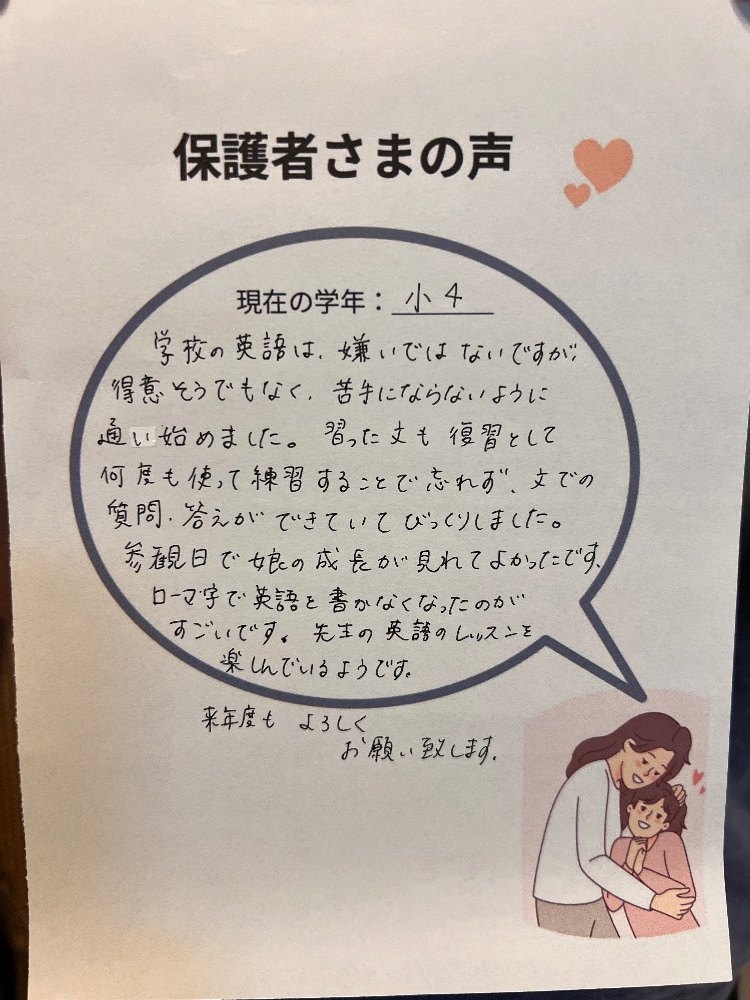 保護者さまの声
現在の学年：小4
学校の英語は、嫌いではないですが、
得意そうでもなく、苦手にならないように
通い始めました。習った文も復習として
何度も使って練習することで忘れず、文での
質問、答えができていてびっくりしました。
参観日で娘の成長が見れてよかったです。
ローマ字で英語を書かなくなったのが
すごいです。先生の英語のレッスンを
楽しんでいるようです。
来年度も よろしく
お願い致します。